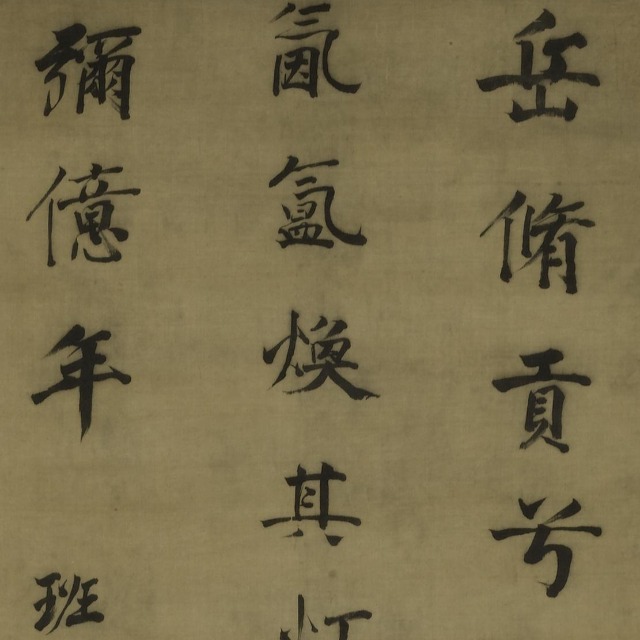 岳脩貢兮
氤氳煥其
彌億年 班